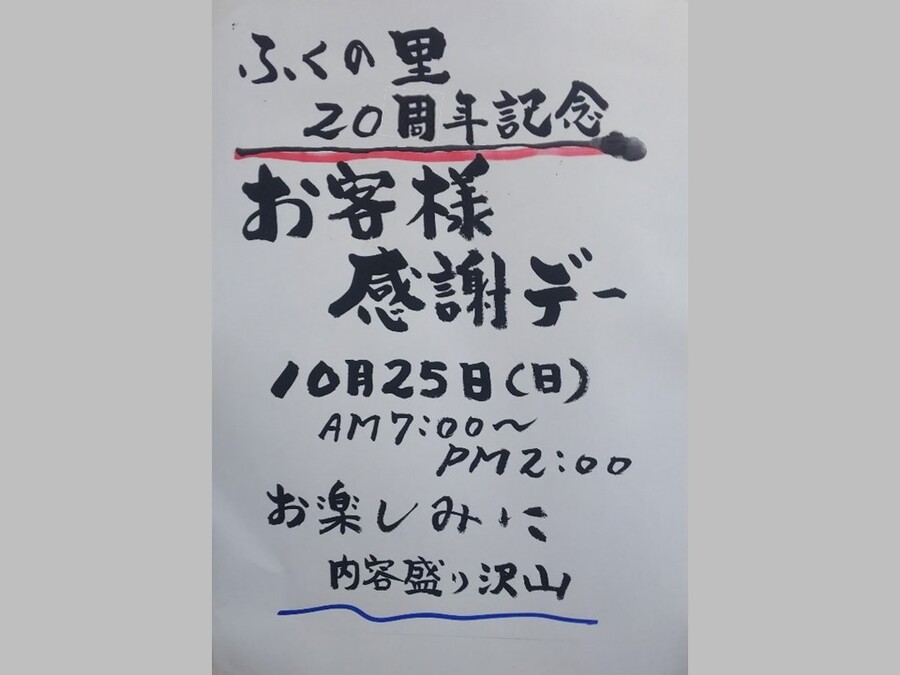 ふくの里
20周年記念
お客様
感謝デー
10月25日(日)
AM7:00～
PM2:00
お楽しみに
内容盛り沢山